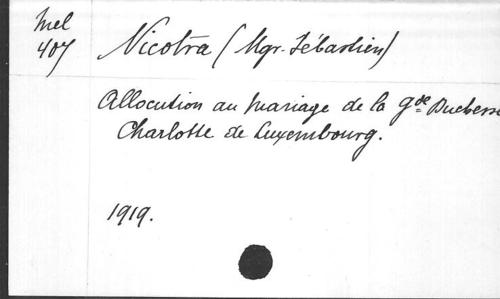 Mel
407
Nicotra (Mgr. Sébastien)
Allocution au mariage de la Gde Duchesse
Charlotte de Luxembourg.
1919.